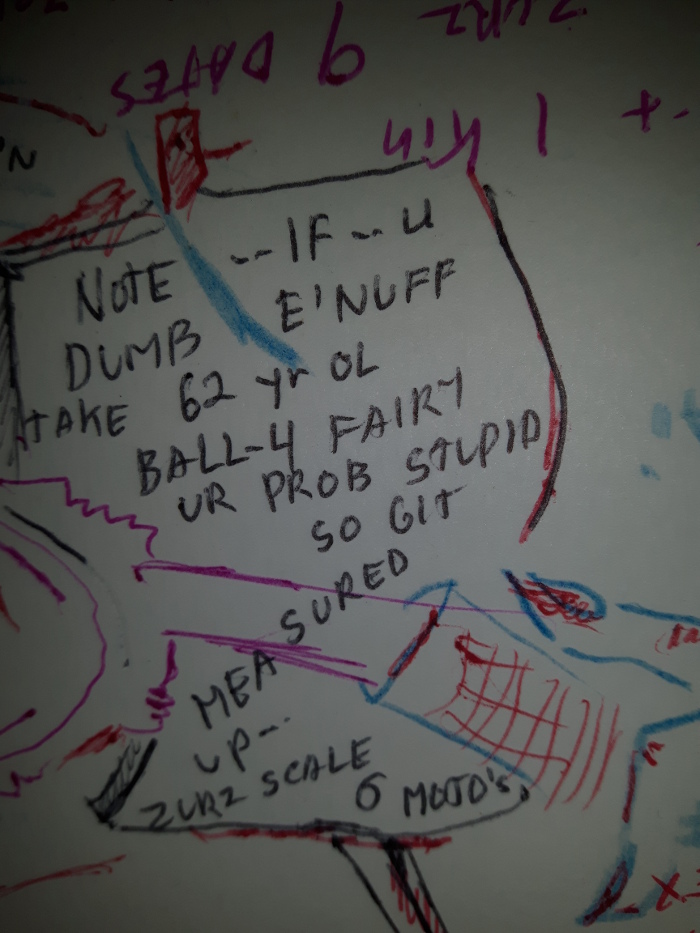 9 DATES
ZURZ
1
NOTE --IF--U
DUMB E'NUFF
TAKE 62 yr OL
BALL-4 FAIRY
UR PROB STUPID
SO GIT
MEASURED
UP--
ZURZ SCALE
6 MOJO'S